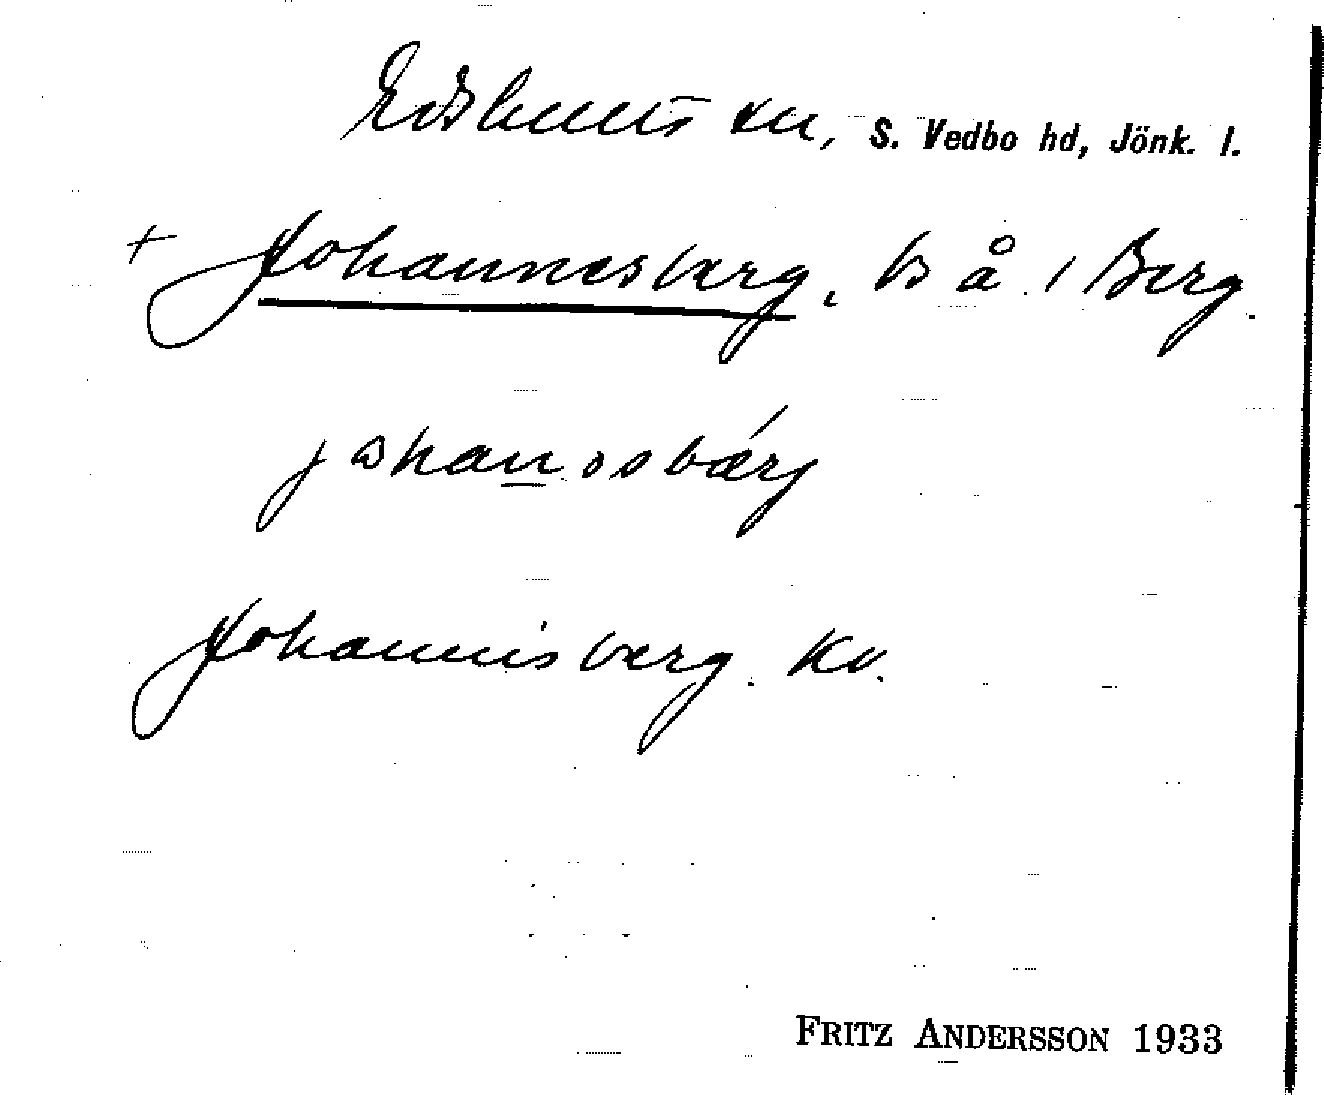 Edshults sn, S. Vedbo hd, Jönk. l.
+ Johannesberg, bs å 1 Berg.
johanəsbærj
Johannisberg. Kv.
FRITZ ANDERSSON 1933